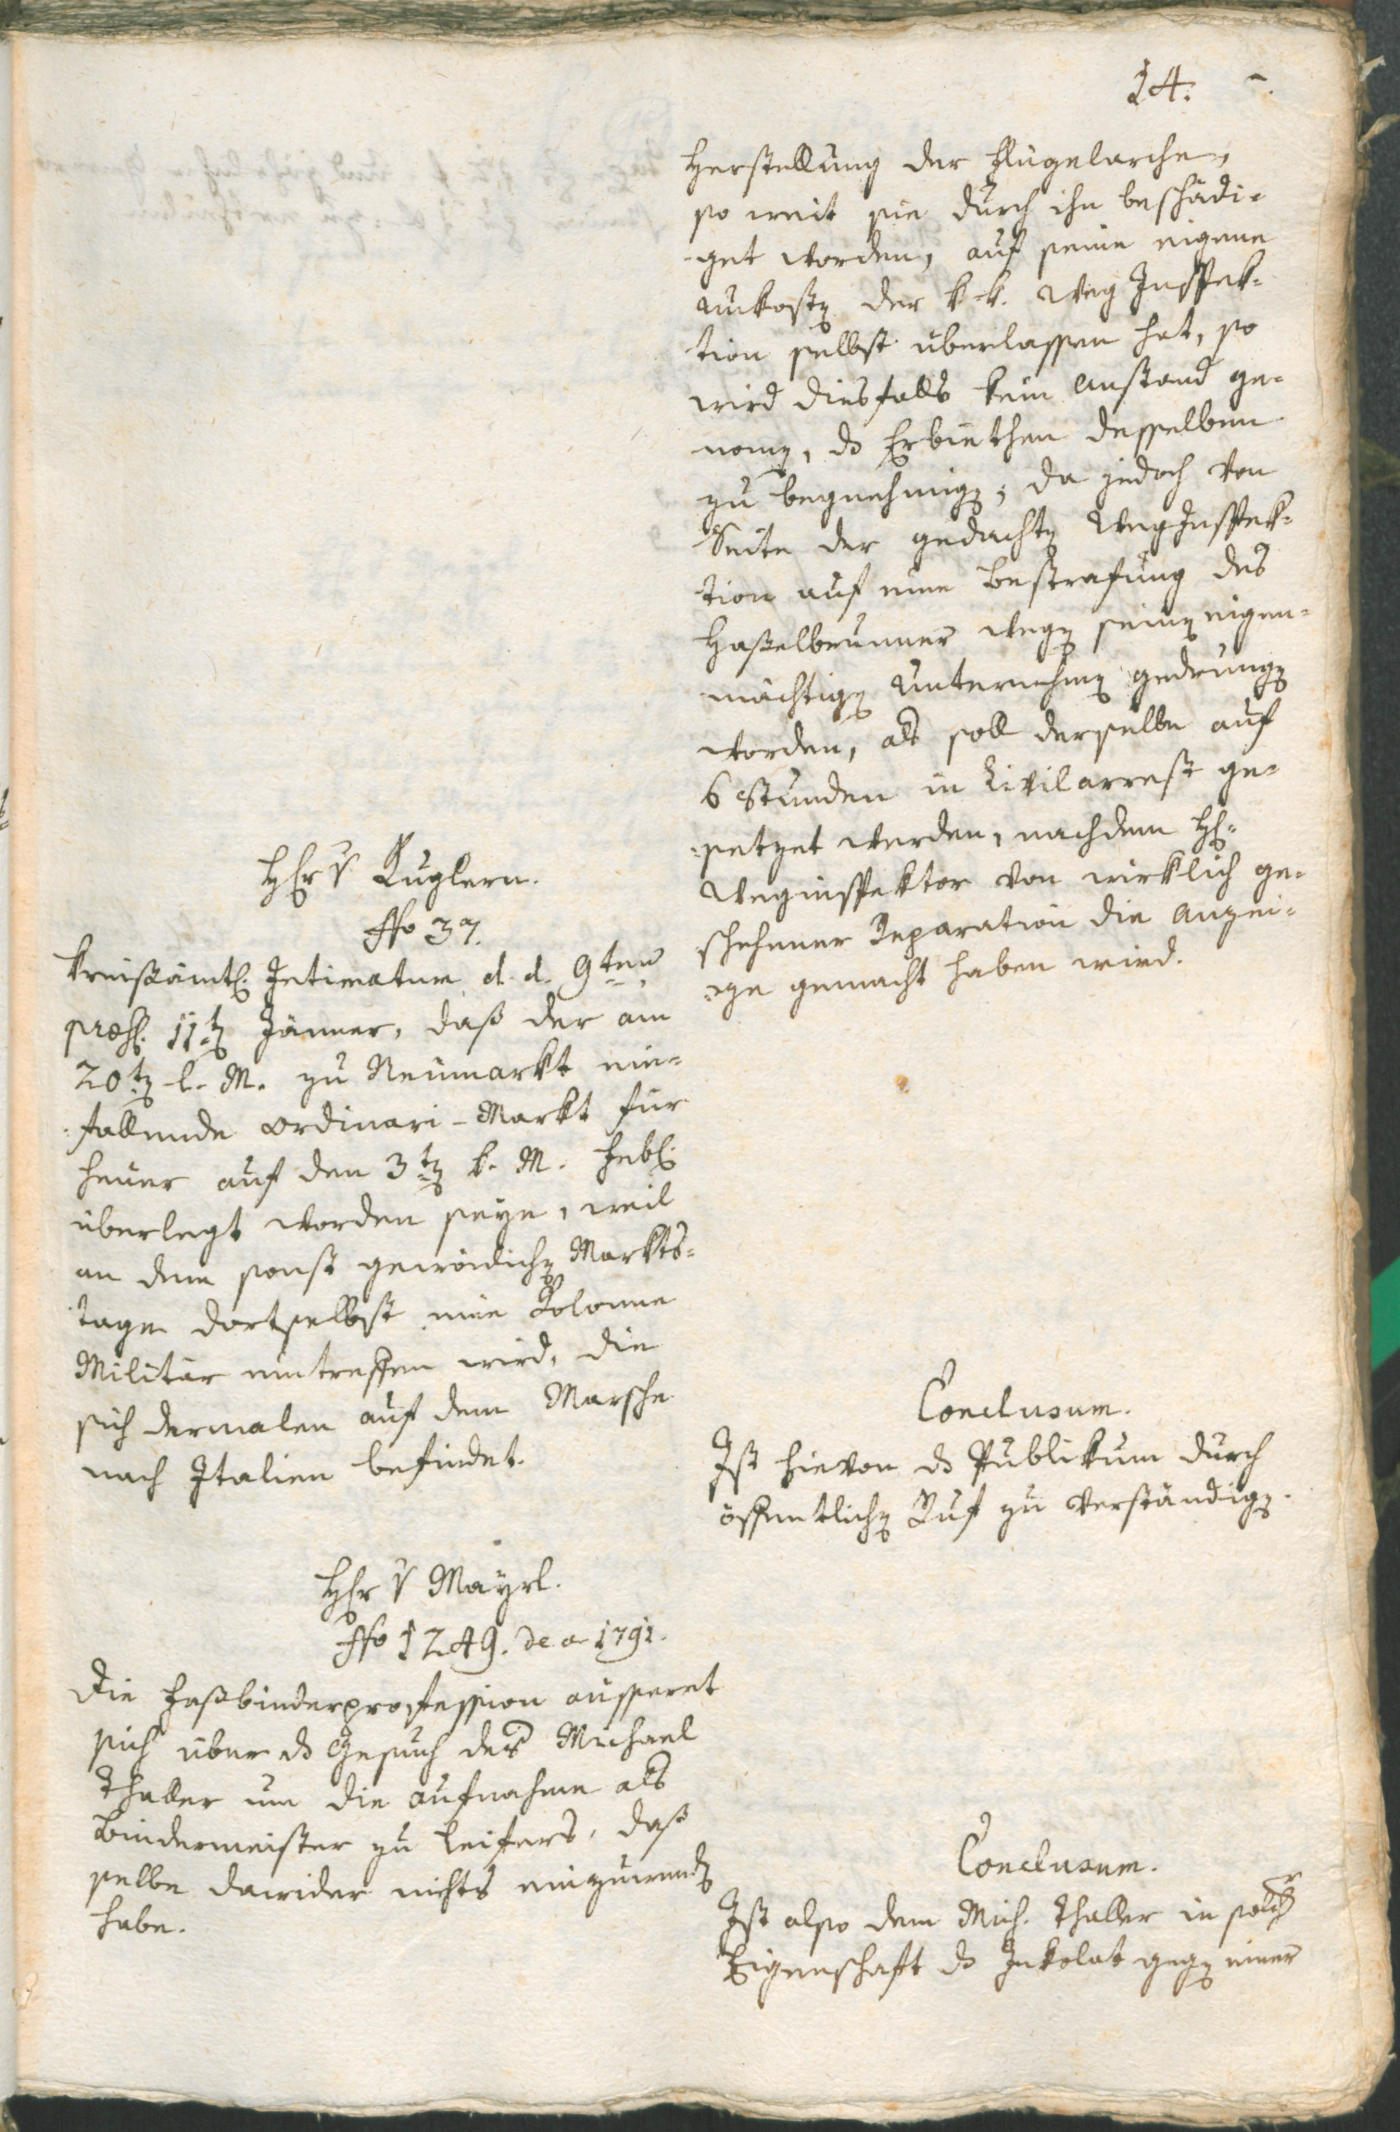 14.
Herstellung der Flügelarche,
so weit sie durch ihn beschädi-
get worden, auf seine eigene
Unkosten der k. k. Weg Inspek-
tion selbst überlassen hat, so
wird diesfalls kein Anstand ge-
nomen, das Erbiethen desselben
zu begnehmigen; da jedoch von
Seite der gedachten Weg Inspek-
tion auf eine Bestrafung des
Haßelbrunner wegen seines eigen-
mächtigen Unternehmen gedrungen
worden, als soll derselbe auf
6 Stunden in Zivilarrest ge-
setzet werden, nachdem H:
Weginspektor von wirklich ge-
schehener Reparation die Anzei-
ge gemacht haben wird.
Herr v Kuglern.
No 37.
Kreisämtl. Intimatum d. d. 9ten
præs. 11ten Jänner, daß der am
20ten l. M. zu Neumarkt ein-
fallende Ordinari-Markt für
heuer auf den 3ten k. M. Febr:
überlegt worden seye, weil
an dem sonst gewöndlichen Markts-
tage dortselbst eine Kolonne
Militär eintreffen wird, die
sich dermalen auf dem Marsche
nach Italien befindet.
Conclusum.
Ist hievon das Publikum durch
öffentlichen Ruf zu verständigen.
Herr v Mayrl.
No 1249. de a 1791.
Die Faßbinderprofession äusseret
sich über das Gesuch des Michael
Thaller um die Aufnahme als
Bindermeister zu Leifers, daß
selbe dawider nichts einzuwenden
habe.
Conclusum.
Ist also dem Mich. Thaller in solcher
Eigenschaft das Inkolat gegen einer